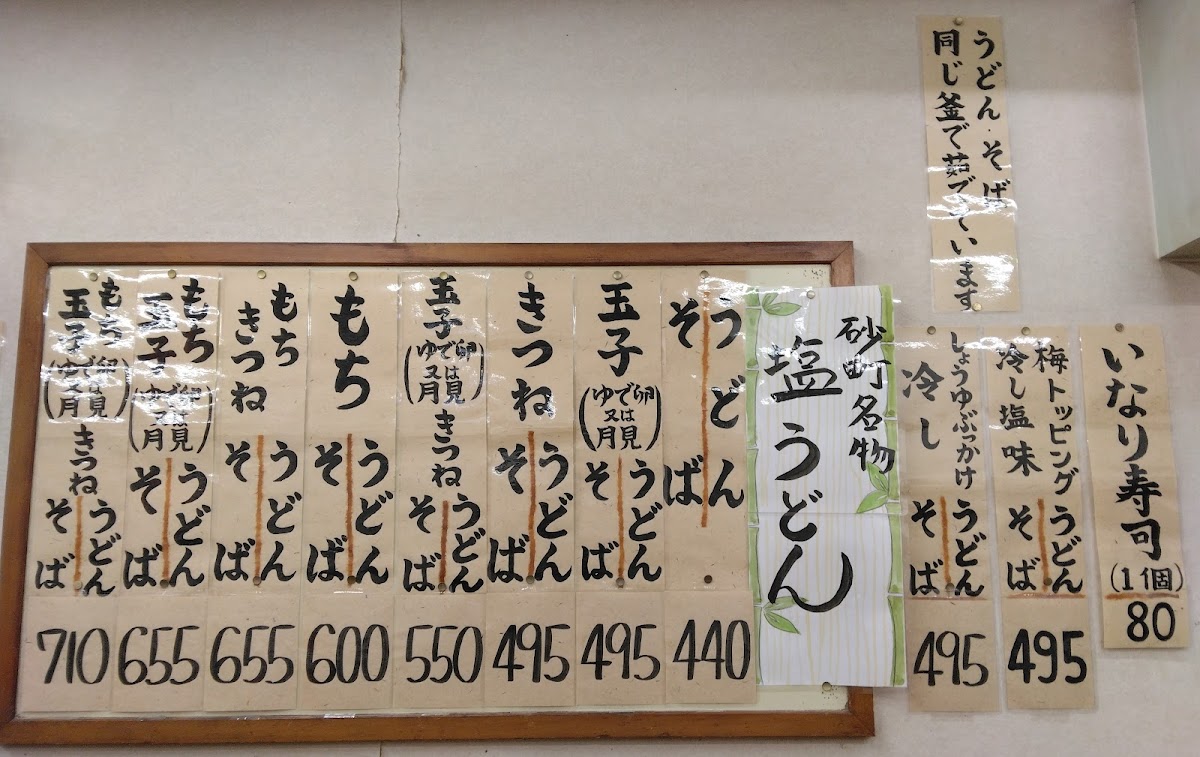 うどん・そば
同じ釜で茹でています
いなり寿司
(1個)
80
梅トッピング
冷し塩味
うどん
そば
495
しょうゆぶっかけ
冷し
うどん
そば
495
砂町名物
塩うどん
うどん
そば
440
玉子
(ゆで卵又は月見)
うどん
そば
495
きつね
うどん
そば
495
玉子
(ゆで卵又は月見)
きつね
うどん
そば
550
もち
うどん
そば
600
もち
きつね
うどん
そば
655
もち
玉子
(ゆで卵又は月見)
うどん
そば
655
もち
玉子
(ゆで卵又は月見)
きつね
うどん
そば
710